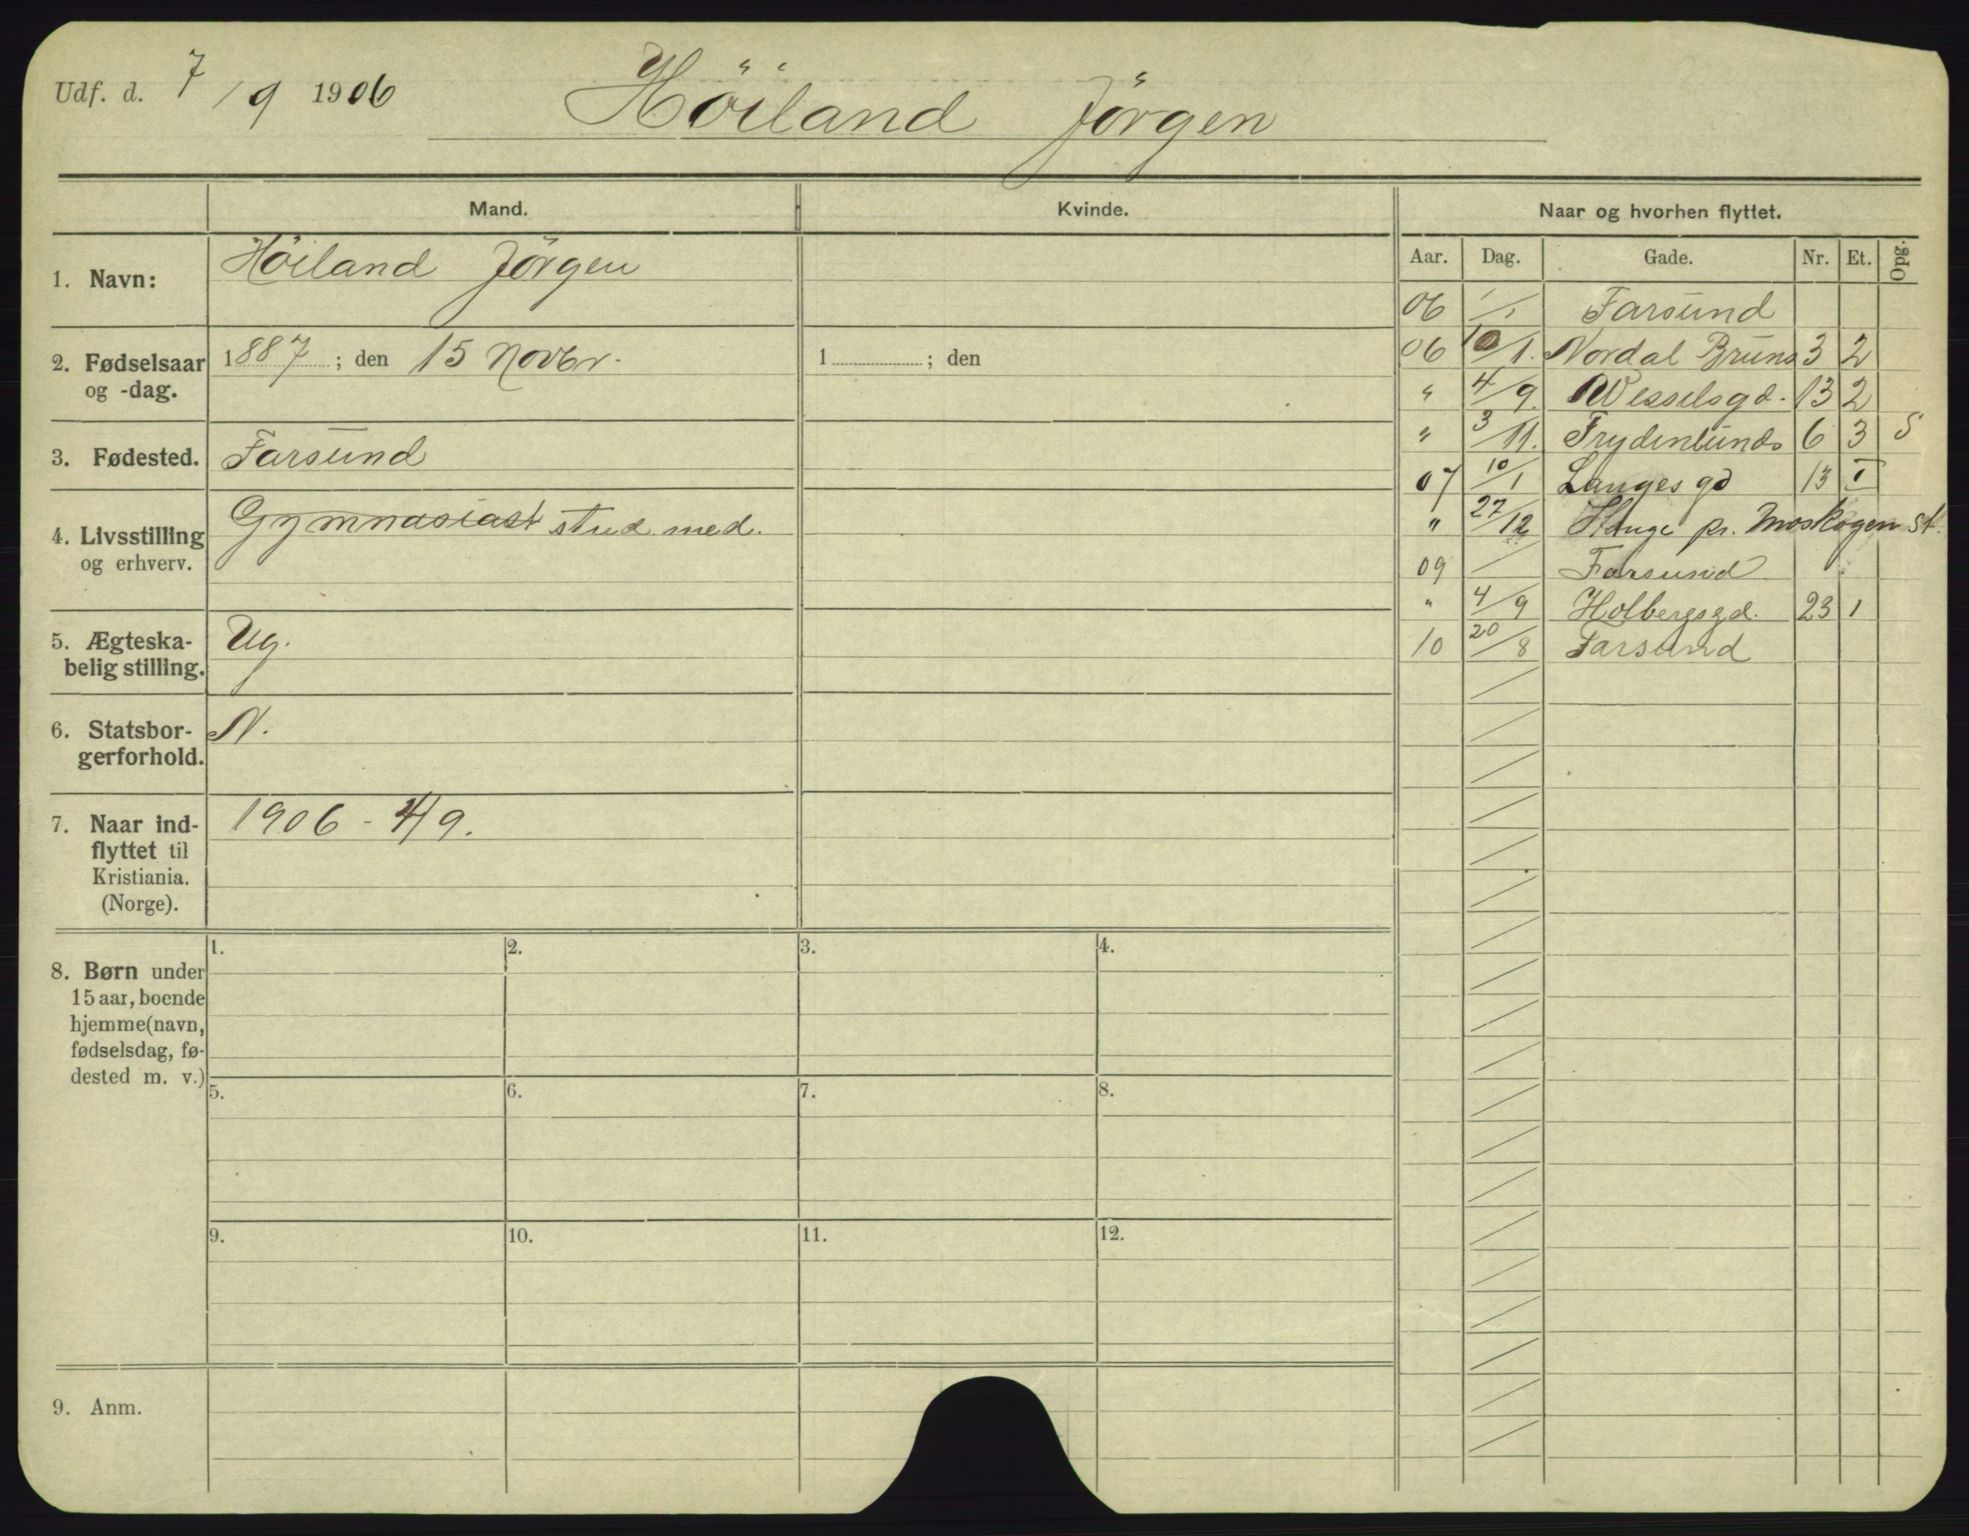 Udf. d. 7/9 1906 Höiland Jörgen
Mand. Kvinde. Naar og hvorhen flyttet.
Aar. Dag. Gade. Nr. Et. Opg.
1. Navn: Höiland Jörgen
2. Fødselsaar og -dag. 1887; den 15 Novbr. 1 ; den
3. Fødested. Farsund
4. Livsstilling og erhverv. Gymnasiast stud med.
5. Ægteska-
belig stilling. Ug.
6. Statsbor-
gerforhold. N.
7. Naar ind-
flyttet til
Kristiania.
(Norge). 1906 - 4/9.
06 1/1 Farsund
06 10/1. Nordal Bruns 3 2
" 4/9. Wesselsgd. 13 2
" 3/11. Frydenlunds 6 3 S
07 10/1 Langes gd 13 I
" 27/12 pr. Moskogen st.
09 / Farsund
" 4/9 Holbergsgd. 23 1
10 20/8 Farsund
8. Børn under
15 aar, boende
hjemme (navn,
fødselsdag, fø-
dested m. v.)
1. 2. 3. 4.
5. 6. 7. 8.
9. 10. 11. 12.
9. Anm.